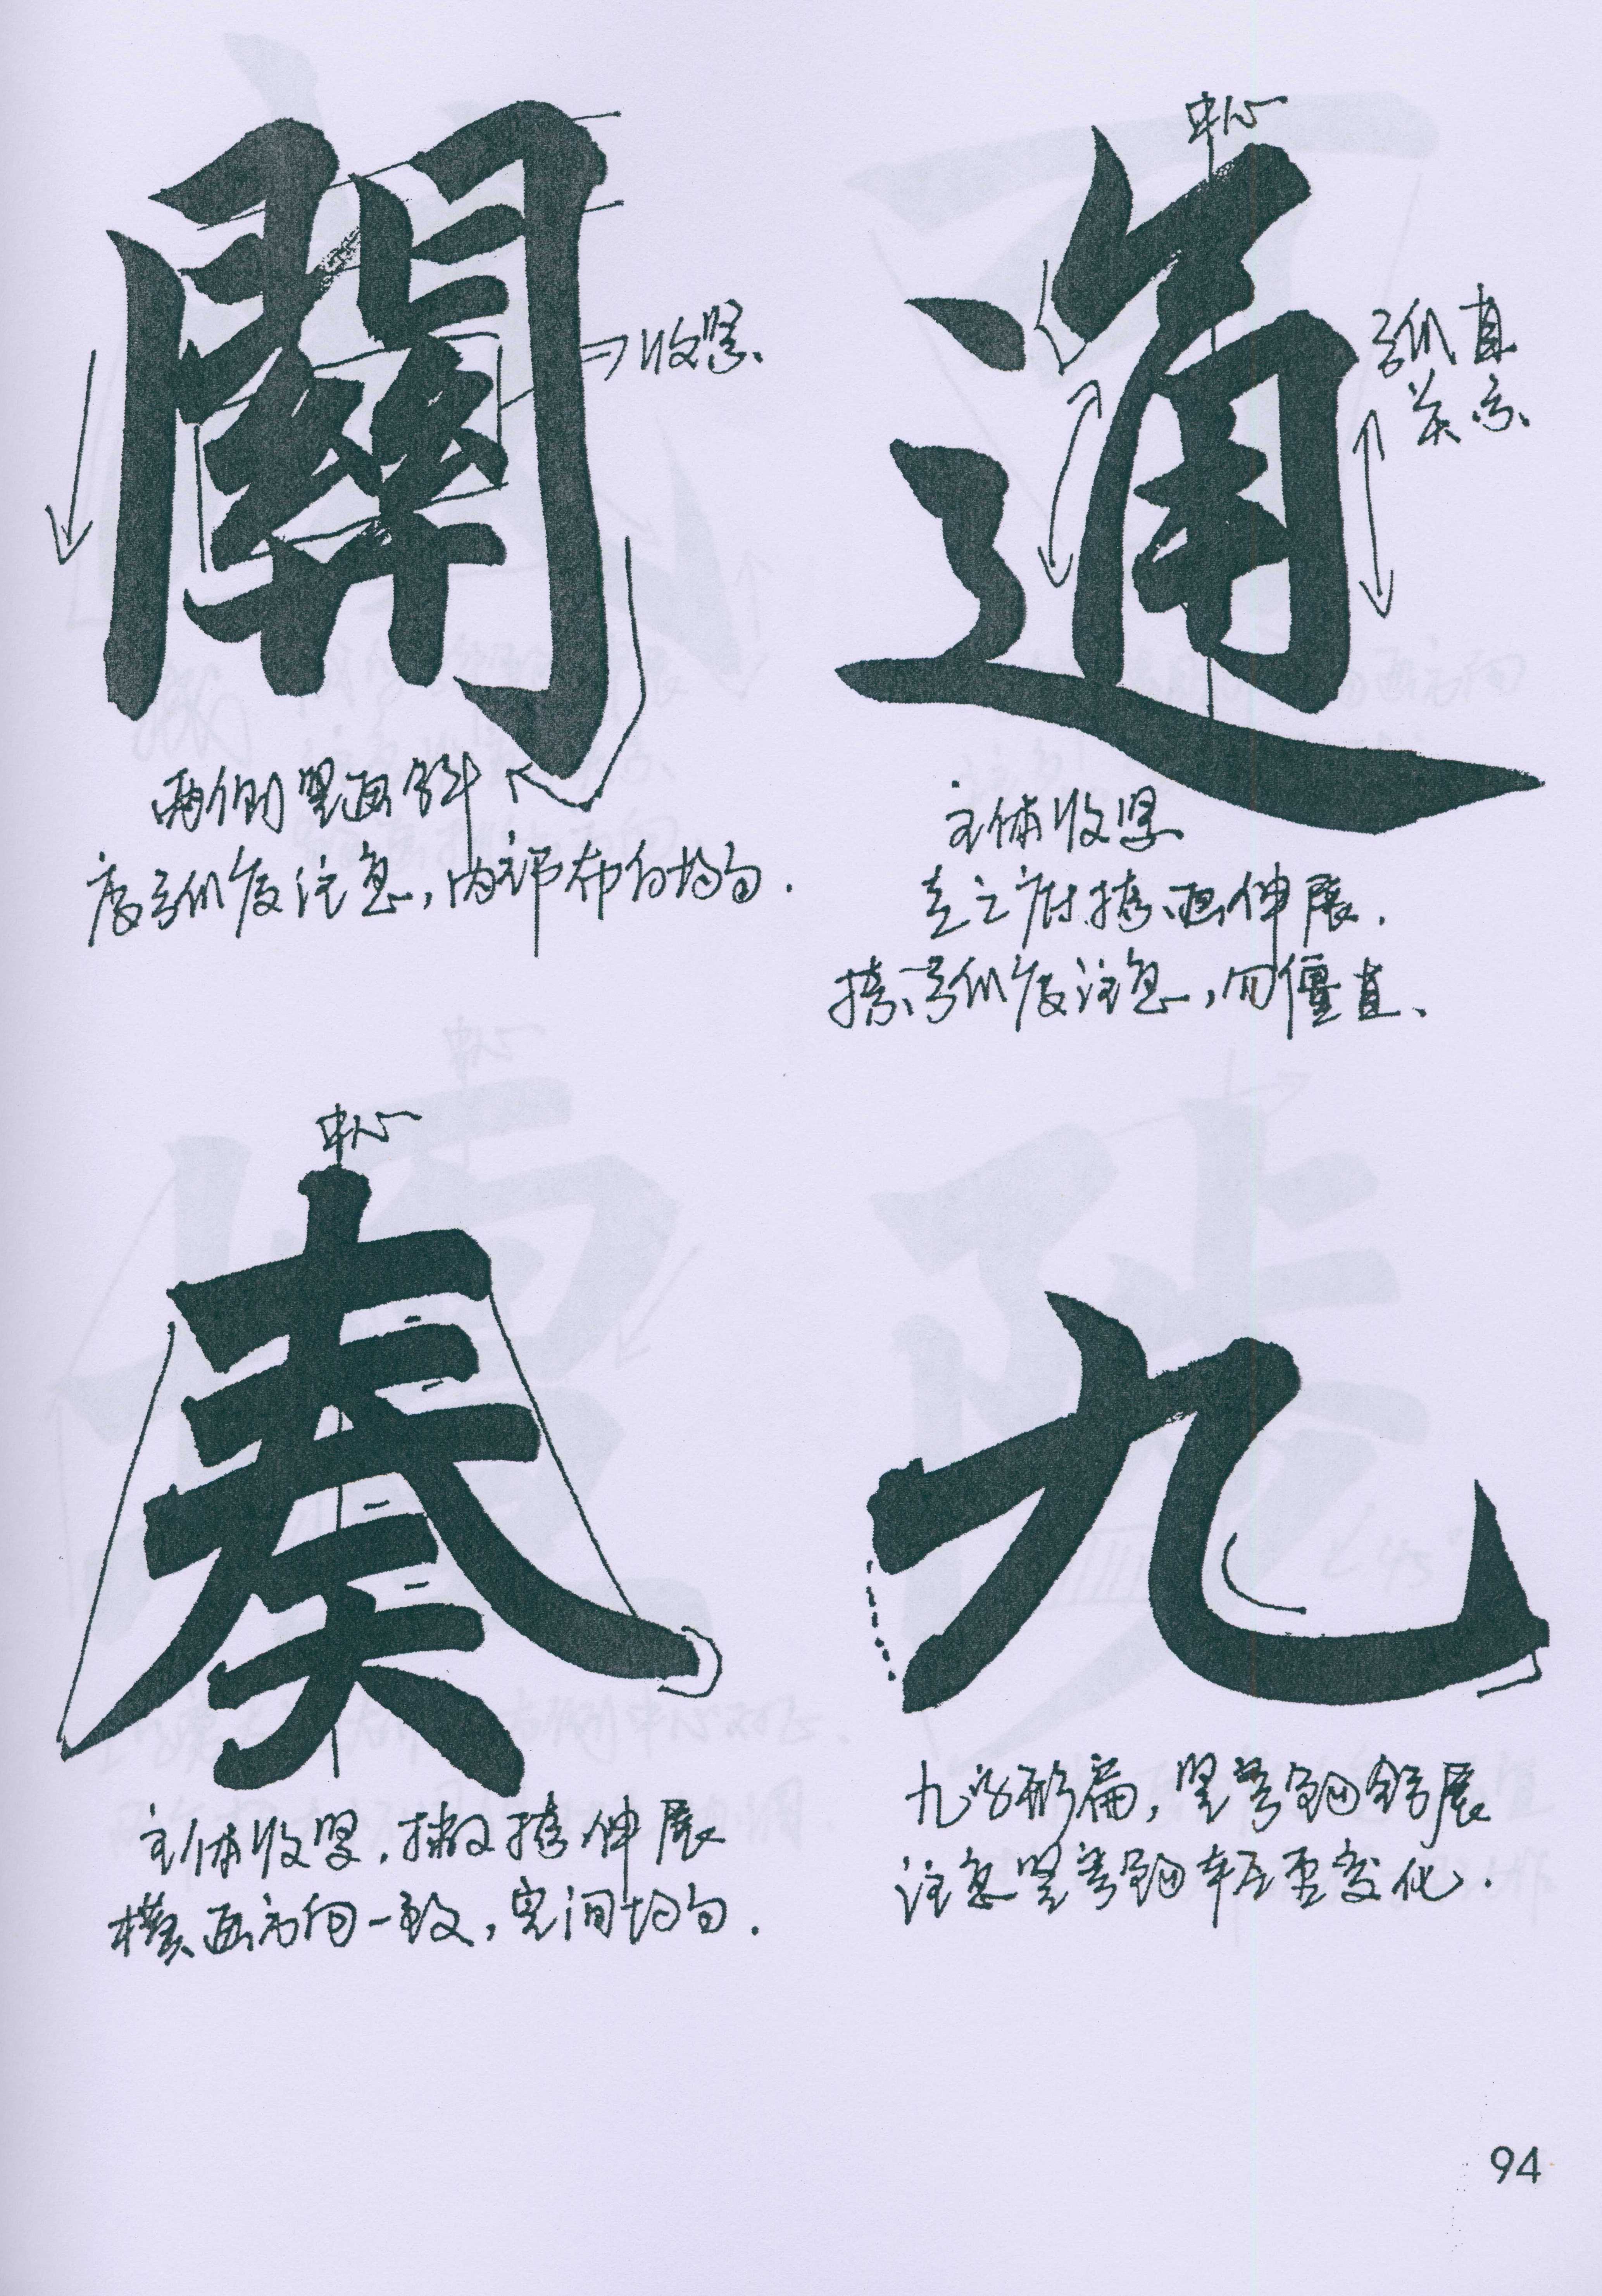 關
收紧
两侧竖画斜
度弧度注意，内部布白均匀.
中心
通
弧直
关系
主体收紧
走之底捺画伸展.
捺弧度注意，勿僵直、
中心
奏
主体收紧.撇捺伸展
横画方向一致，空间均匀.
九
九字形扁，竖弯钩舒展
注意竖弯钩轻重变化.
94